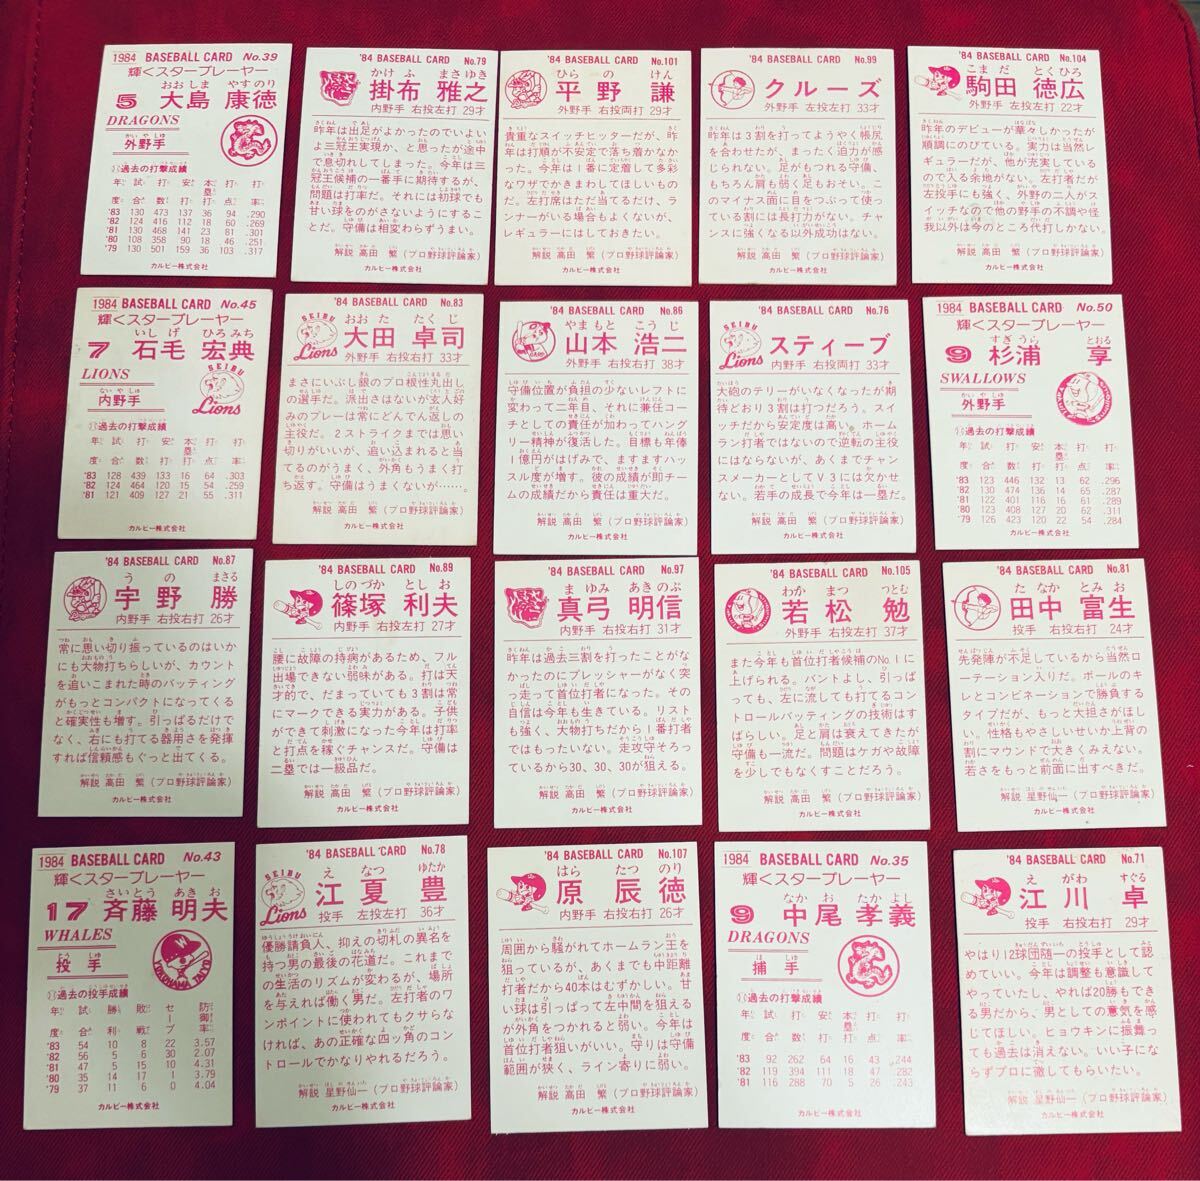 1984 BASEBALL CARD No.39
輝くスタープレーヤー
おおしま やすのり
5 大島 康徳
DRAGONS
がいやしゅ
外野手
過去の打撃成績
年 試 打 安 本 打 打
塁
度 合 数 打 打 点 率
'83 130 473 137 36 94 .290
'82 124 416 112 18 60 .269
'81 130 468 141 23 81 .301
'80 108 358 90 18 46 .251
'79 130 501 159 36 103 .317
カルビー株式会社
'84 BASEBALL CARD No.79
かけふ まさゆき
掛布 雅之
内野手 右投左打 29才
昨年は出足がよかったのでいよい
よ三冠王実現か、と思ったが途中
で息切れしてしまった。今年は三
冠王候補の一番手に期待するが、
問題は打率だ。それには初球でも
甘い球をのがさないようにするこ
とだ。守備は相変わらずうまい。
解説 高田 繁(プロ野球評論家)
カルビー株式会社
'84 BASEBALL CARD No.101
ひらの けん
平野 謙
外野手 右投両打 29才
貴重なスイッチヒッターだが、昨
年は打順が不安定で落ち着かなか
った。今年は1番に定着して多彩
なワザでかきまわしてほしいもの
だ。左打席はただ当てるだけ、ラ
ンナーがいる場合もよくないが、
レギュラーにはしておきたい。
解説 高田 繁(プロ野球評論家)
カルビー株式会社
'84 BASEBALL CARD No.99
クルーズ
外野手 左投左打 33才
昨年は3割を打ってようやく帳尻
を合わせたが、まったく迫力が感
じられない。足がもつれる守備、
もちろん肩も弱く足もおそい。こ
のマイナス面に目をつぶって使っ
ている割には長打力がない。チャ
ンスに強くなる以外成功はない。
解説 高田 繁(プロ野球評論家)
カルビー株式会社
'84 BASEBALL CARD No.104
こまだ とくひろ
駒田 徳広
外野手 左投左打 22才
昨年のデビューが華々しかったが
順調にのびている。実力は当然レ
ギュラーだが、他が充実している
ので入る余地がない。左打者だが
左投手にも強く、外野の二人がス
イッチなので他の野手の不調や怪
我以外は今のところ代打しかない。
解説 高田 繁(プロ野球評論家)
カルビー株式会社
1984 BASEBALL CARD No.45
輝くスタープレーヤー
いしげ ひろみち
7 石毛 宏典
LIONS
ないやしゅ
内野手
SEIBU
Lions
過去の打撃成績
年 試 打 安 本 打 打
塁
度 合 数 打 打 点 率
'83 128 439 133 16 64 .303
'82 124 464 120 15 54 .259
'81 121 409 127 21 55 .311
カルビー株式会社
'84 BASEBALL CARD No.83
SEIBU
Lions
おおた たくじ
大田 卓司
外野手 右投右打 33才
まさにいぶし銀のプロ根性丸出し
の選手だ。派出さはないが玄人好
みのプレーは常にどんでん返しの
主役だ。2ストライクまでは思い
切りがいいが、追い込まれると当
てるのがうまく、外角もうまく打
ち返す。守備はうまくないが……。
解説 高田 繁(プロ野球評論家)
カルビー株式会社
'84 BASEBALL CARD No.86
やまもと こうじ
山本 浩二
外野手 右投右打 38才
守備位置が負担の少ないレフトに
変わって二年目、それに兼任コー
チとしての責任が加わってハング
リー精神が復活した。目標も年俸
1億円がはげみで、ますますハッ
スル度が増す。彼の成績が即チー
ムの成績だから責任は重大だ。
解説 高田 繁(プロ野球評論家)
カルビー株式会社
'84 BASEBALL CARD No.76
SEIBU
Lions
スティーブ
内野手 右投両打 33才
大砲のテリーがいなくなったが期
待どおり3割は打つだろう。スイ
ッチだから安定度は高い。ホーム
ラン打者ではないので逆転の主役
にはならないが、あくまでチャン
スメーカーとしてV3には欠かせ
ない。若手の成長で今年は一塁だ。
解説 高田 繁(プロ野球評論家)
カルビー株式会社
1984 BASEBALL CARD No.50
輝くスタープレーヤー
すぎうら とおる
9 杉浦 享
SWALLOWS
がいやしゅ
外野手
過去の打撃成績
年 試 打 安 本 打 打
塁
度 合 数 打 打 点 率
'83 123 446 132 13 62 .296
'82 130 474 136 14 65 .287
'81 122 408 118 16 61 .289
'80 123 401 125 20 62 .311
'79 126 423 120 22 54 .284
カルビー株式会社
'84 BASEBALL CARD No.87
うの まさる
宇野 勝
内野手 右投右打 26才
常に思い切り振っているのはいか
にも大物打ちらしいが、カウント
を追いこまれた時のバッティング
がもっとコンパクトになってくる
と確実性も増す。引っぱるだけで
なく、右にも打てる器用さを発揮
すれば信頼感もぐっと出てくる。
解説 高田 繁(プロ野球評論家)
カルビー株式会社
'84 BASEBALL CARD No.89
しのづか としお
篠塚 利夫
内野手 右投左打 27才
腰に故障の持病があるため、フル
出場できない弱味がある。打は天
才的で、だまっていても3割は常
にマークできる実力がある。子供
ができて刺激になった今年は打率
と打点を稼ぐチャンスだ。守備は
二塁では一級品だ。
解説 高田 繁(プロ野球評論家)
カルビー株式会社
'84 BASEBALL CARD No.97
まゆみ あきのぶ
真弓 明信
内野手 右投右打 31才
昨年は過去三割を打ったことがな
かったのにプレッシャーがなく突
っ走って首位打者になった。その
自信は今年も生きている。リスト
も強く、大物打ちだから1番打者
ではもったいない。走攻守そろっ
ているから30、30、30が狙える。
解説 高田 繁(プロ野球評論家)
カルビー株式会社
'84 BASEBALL CARD No.105
わかまつ つとむ
若松 勉
外野手 右投左打 37才
また今年も首位打者候補のNo.1に
上げられる。バントよし、引っぱ
っても、左に流しても打てるコン
トロールバッティングの技術はす
ばらしい。足と肩は衰えてきたが
守備も一流だ。問題はケガや故障
を少しでもなくすことだろう。
解説 高田 繁(プロ野球評論家)
カルビー株式会社
'84 BASEBALL CARD No.81
たなか とみお
田中 富生
投手 右投右打 24才
先発陣が不足しているから当然ロ
ーテーション入りだ。ボールのキ
レとコンビネーションで勝負する
タイプだが、もっと大担さがほし
い。性格もやさしいせいか上背の
割にマウンドで大きくみえない。
若さをもっと前面に出すべきだ。
解説 星野仙一(プロ野球評論家)
カルビー株式会社
1984 BASEBALL CARD No.43
輝くスタープレーヤー
さいとう あきお
17 斉藤 明夫
WHALES
とうしゅ
投手
YOKOHAMA TAIYO
過去の投手成績
年 試 勝 敗 セ 防
ー 御
度 合 利 戦 ブ 率
'83 54 10 8 22 3.57
'82 56 5 6 30 2.07
'81 47 5 15 10 4.31
'80 35 14 17 1 3.79
'79 37 11 6 0 4.04
カルビー株式会社
'84 BASEBALL CARD No.78
SEIBU
Lions
えなつ ゆたか
江夏 豊
投手 左投左打 36才
優勝請負人、抑えの切札の異名を
持つ男の最後の花道だ。これまで
の生活のリズムが変わるが、場所
を与えれば働く男だ。左打者のワ
ンポイントに使われてもクサらな
ければ、あの正確な四ッ角のコン
トロールでかなりやれるだろう。
解説 星野仙一(プロ野球評論家)
カルビー株式会社
'84 BASEBALL CARD No.107
はら たつのり
原 辰徳
内野手 右投右打 26才
周囲から騒がれてホームラン王を
狙っているが、あくまでも中距離
打者だから40本はむずかしい。甘
い球は引っぱって左中間を狙える
が外角をつかれると弱い。今年は
首位打者狙いがいい。守りは守備
範囲が狭く、ライン寄りに弱い。
解説 高田 繁(プロ野球評論家)
カルビー株式会社
1984 BASEBALL CARD No.35
輝くスタープレーヤー
なかお たかよし
9 中尾 孝義
DRAGONS
ほしゅ
捕手
過去の打撃成績
年 試 打 安 本 打 打
塁
度 合 数 打 打 点 率
'83 92 262 64 16 43 .244
'82 119 394 111 18 47 .282
'81 116 288 70 5 26 .243
カルビー株式会社
'84 BASEBALL CARD No.71
えがわ すぐる
江川 卓
投手 右投右打 29才
やはり12球団随一の投手として認
めていい。今年は調整も意識して
やっていたし、やれば20勝もでき
る男だから、男としての意気を感
じてほしい。ヒョウキンに振舞っ
ても過去は消えない。いい子にな
らずプロに徹してもらいたい。
解説 星野仙一(プロ野球評論家)
カルビー株式会社